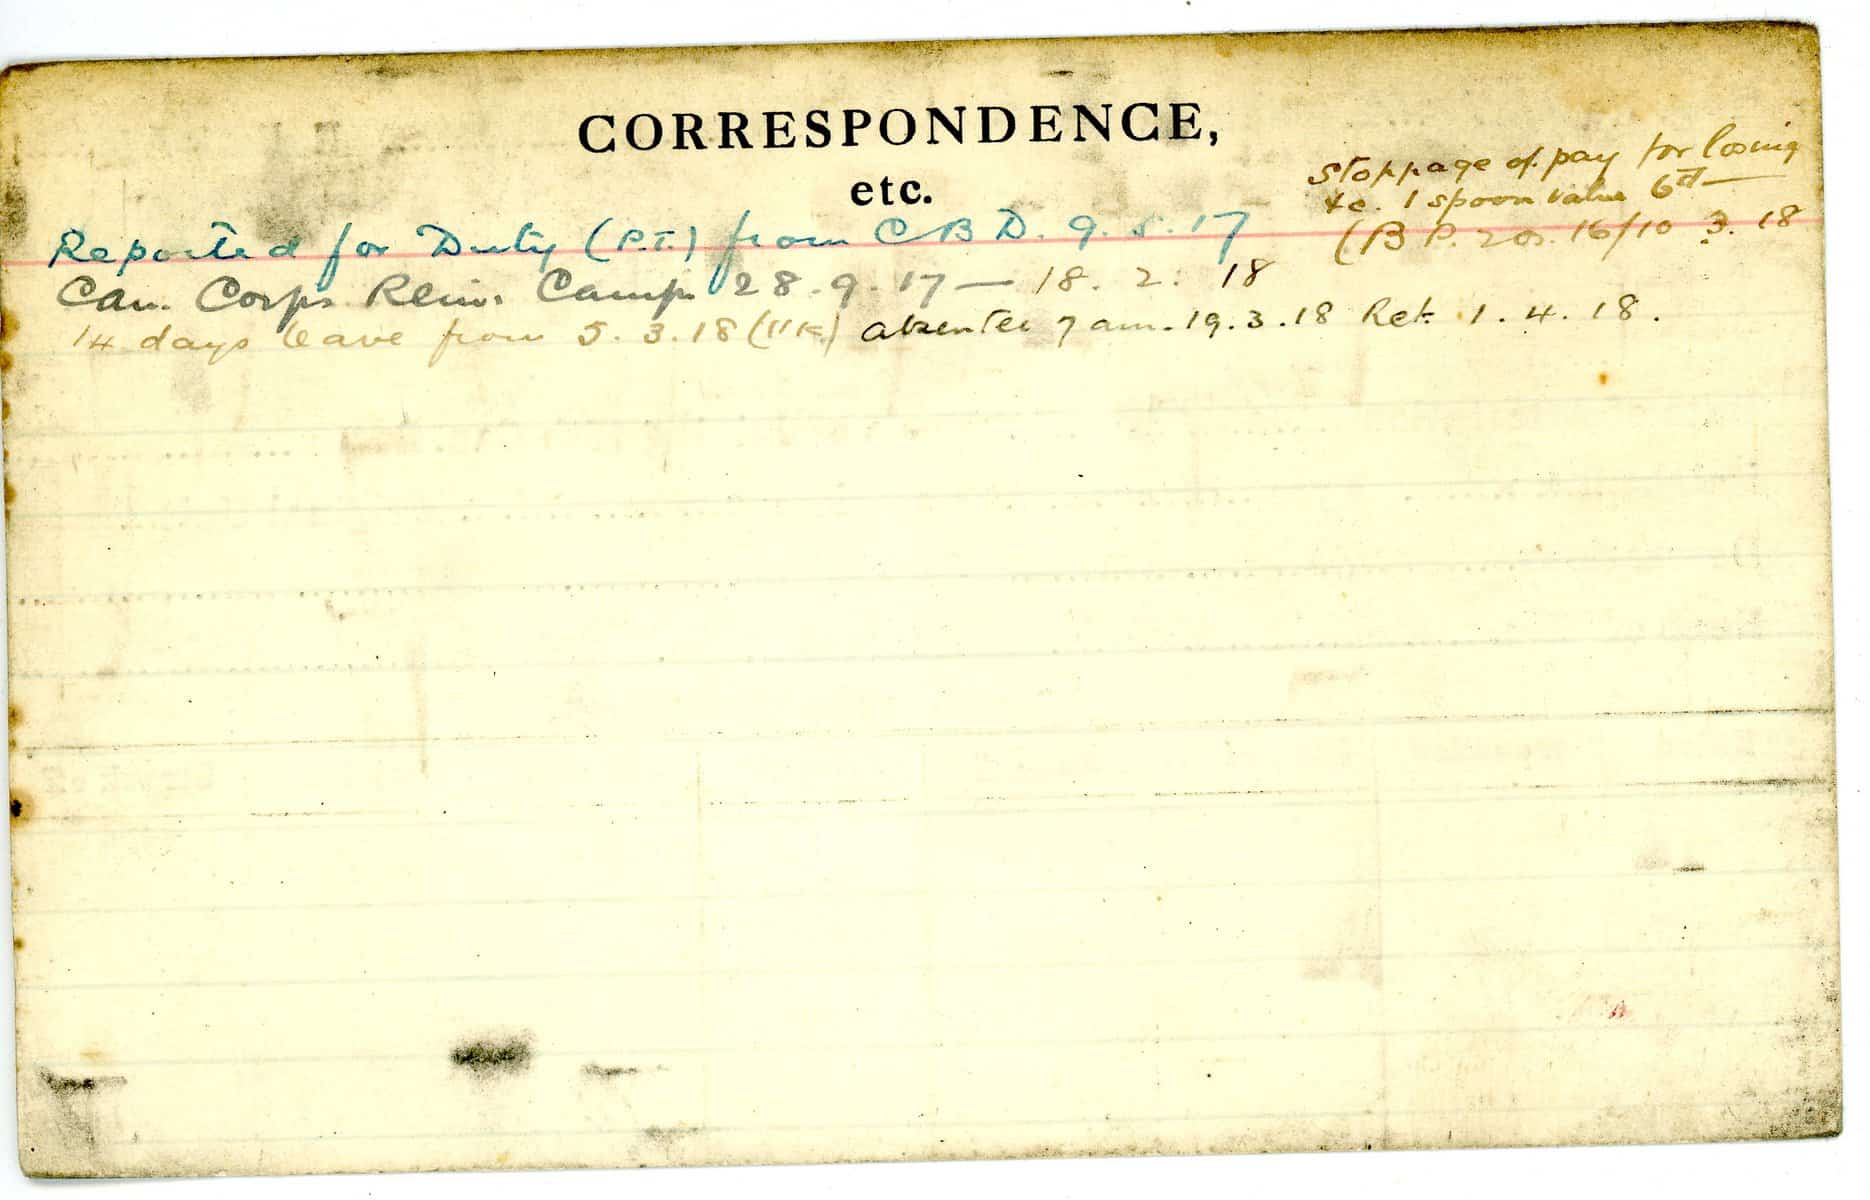 CORRESPONDENCE,
etc.
Stoppage of pay for losing
&c. 1 spoon value 6d—
(B P. 2 or. 16/10 3. 18
Reported for Duty (P.T.) from C B D. 9. 5. 17
Can. Corps Rein. Camp 28. 9. 17 — 18. 2. 18
14 days leave from 5. 3. 18 (UK) absentee 7 am. 19. 3. 18 Ret. 1. 4. 18.